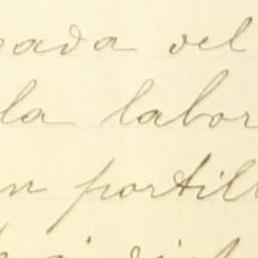 pada del
la labor
n portill